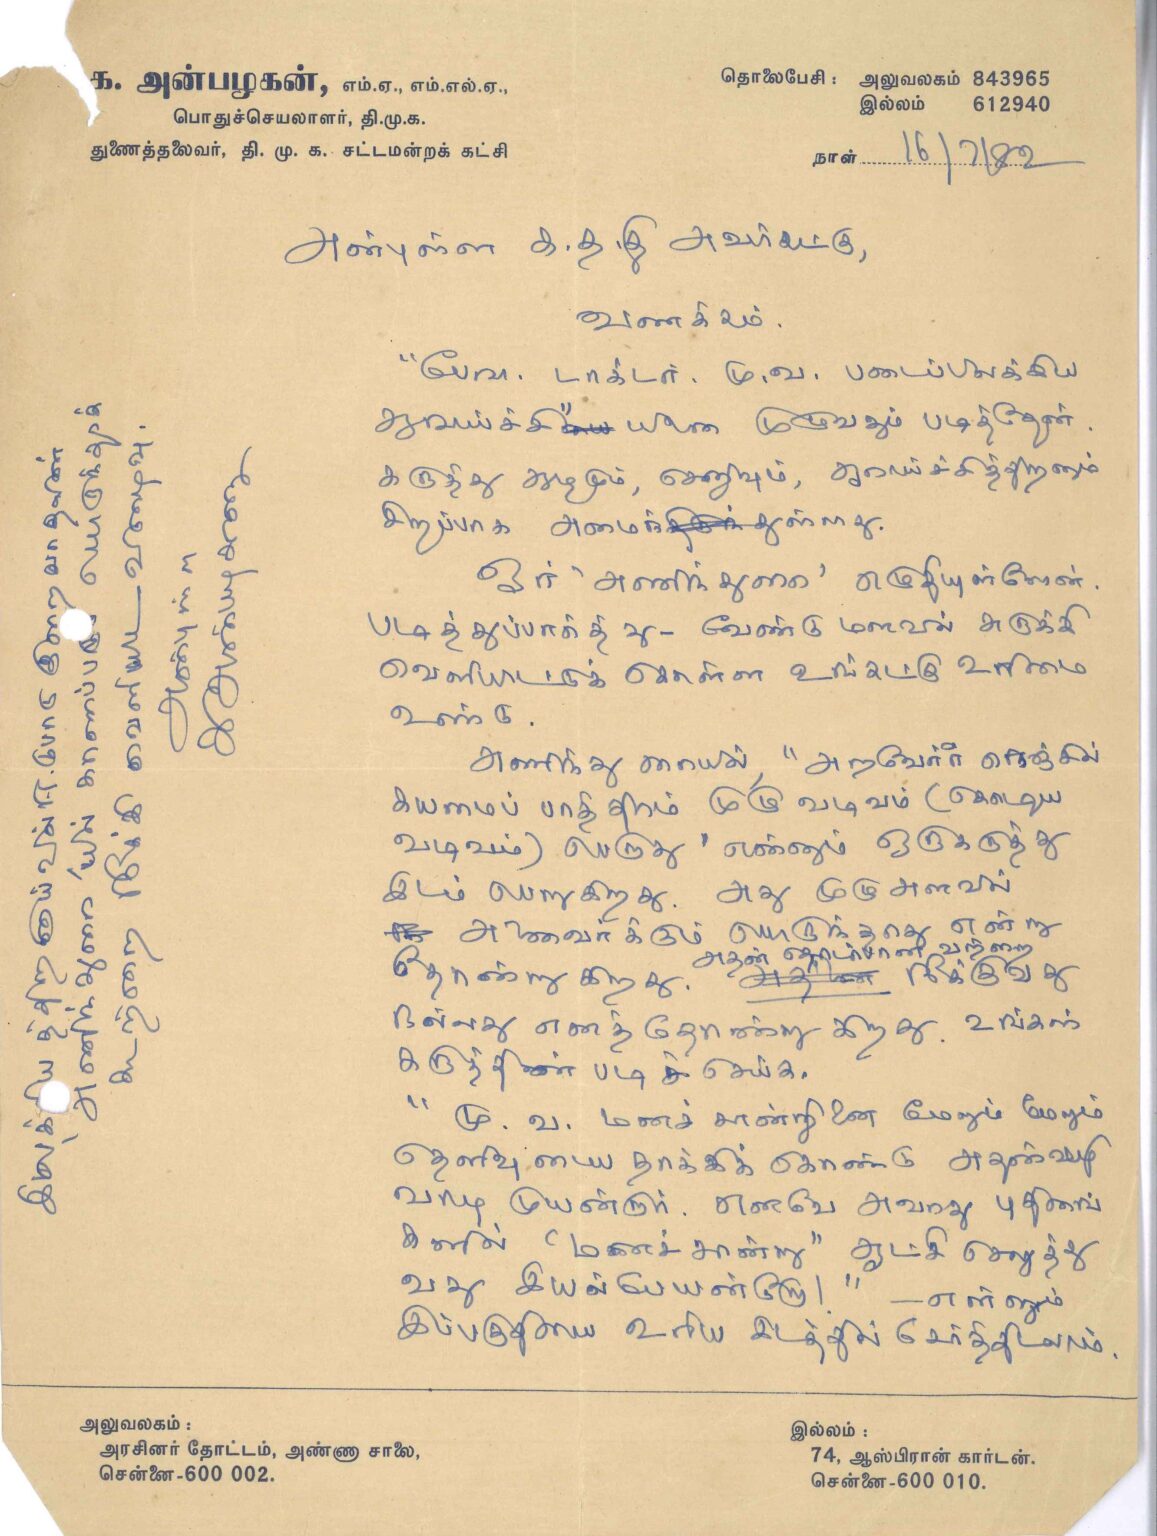 க. அன்பழகன், எம்.ஏ., எம்.எல்.ஏ.,
பொதுச்செயலாளர், தி.மு.க.
துணைத்தலைவர், தி. மு. க. சட்டமன்றக் கட்சி
தொலைபேசி : அலுவலகம் 843965
இல்லம் 612940
நாள் 16/7/82
அன்புள்ள க.த.தி அவர்கட்கு,
வணக்கம்.
"பேரா. டாக்டர். மு.வ. படைப்பிலக்கிய
ஆராய்ச்சி" யினை முழுவதும் படித்தேன்.
கருத்து ஆழமும், செறிவும், ஆராய்ச்சித்திறனும்
சிறப்பாக அமைந்துள்ளது.
ஓர் 'அணிந்துரை' எழுதியுள்ளேன்.
படித்துப்பார்த்து - வேண்டுமளவில் சுருக்கி
வெளியிட்டுக் கொள்ள உங்கட்கு உரிமை
உண்டு.
அணிந்துரையில், "அறவோர் நெஞ்சில்
கயமைப் பாத்திரம் முழு வடிவம் (கொடிய
வடிவம்) பெறாது' என்னும் ஒருகருத்து
இடம் பெறுகிறது. அது முழுஅளவில்
அனைவர்க்கும் பொருந்தாது என்று
தோன்றுகிறது. அதன் தொடர்பானவற்றை நீக்குவது
நல்லது எனத்தோன்றுகிறது. உங்கள்
கருத்தின் படிச் செய்க.
"மு. வ. மனச்சான்றினை மேலும் மேலும்
தெளிவுடைய தாக்கிக் கொண்டு அதன்வழி
வாழ முயன்றார். எனவே அவரது புதினங்
களில் "மனச்சான்று" ஆட்சி செலுத்து
வது இயல்பேயன்றோ!" - என்னும்
இப்பகுதியை உரிய இடத்தில் சேர்த்திடலாம்.
இலக்கியத்திறனாய்வுக்கு ஈடுபாடு இறைவாதான்
அணிந்துரையில் காணப்படும் பொருந்தாக்
கூற்றை நீக்கி வெளியிட விழைவு.
அன்புள்ள
க.அன்பழகன்
அலுவலகம் :
அரசினர் தோட்டம், அண்ணா சாலை,
சென்னை-600 002.
இல்லம் :
74, ஆஸ்பிரான் கார்டன்.
சென்னை-600 010.